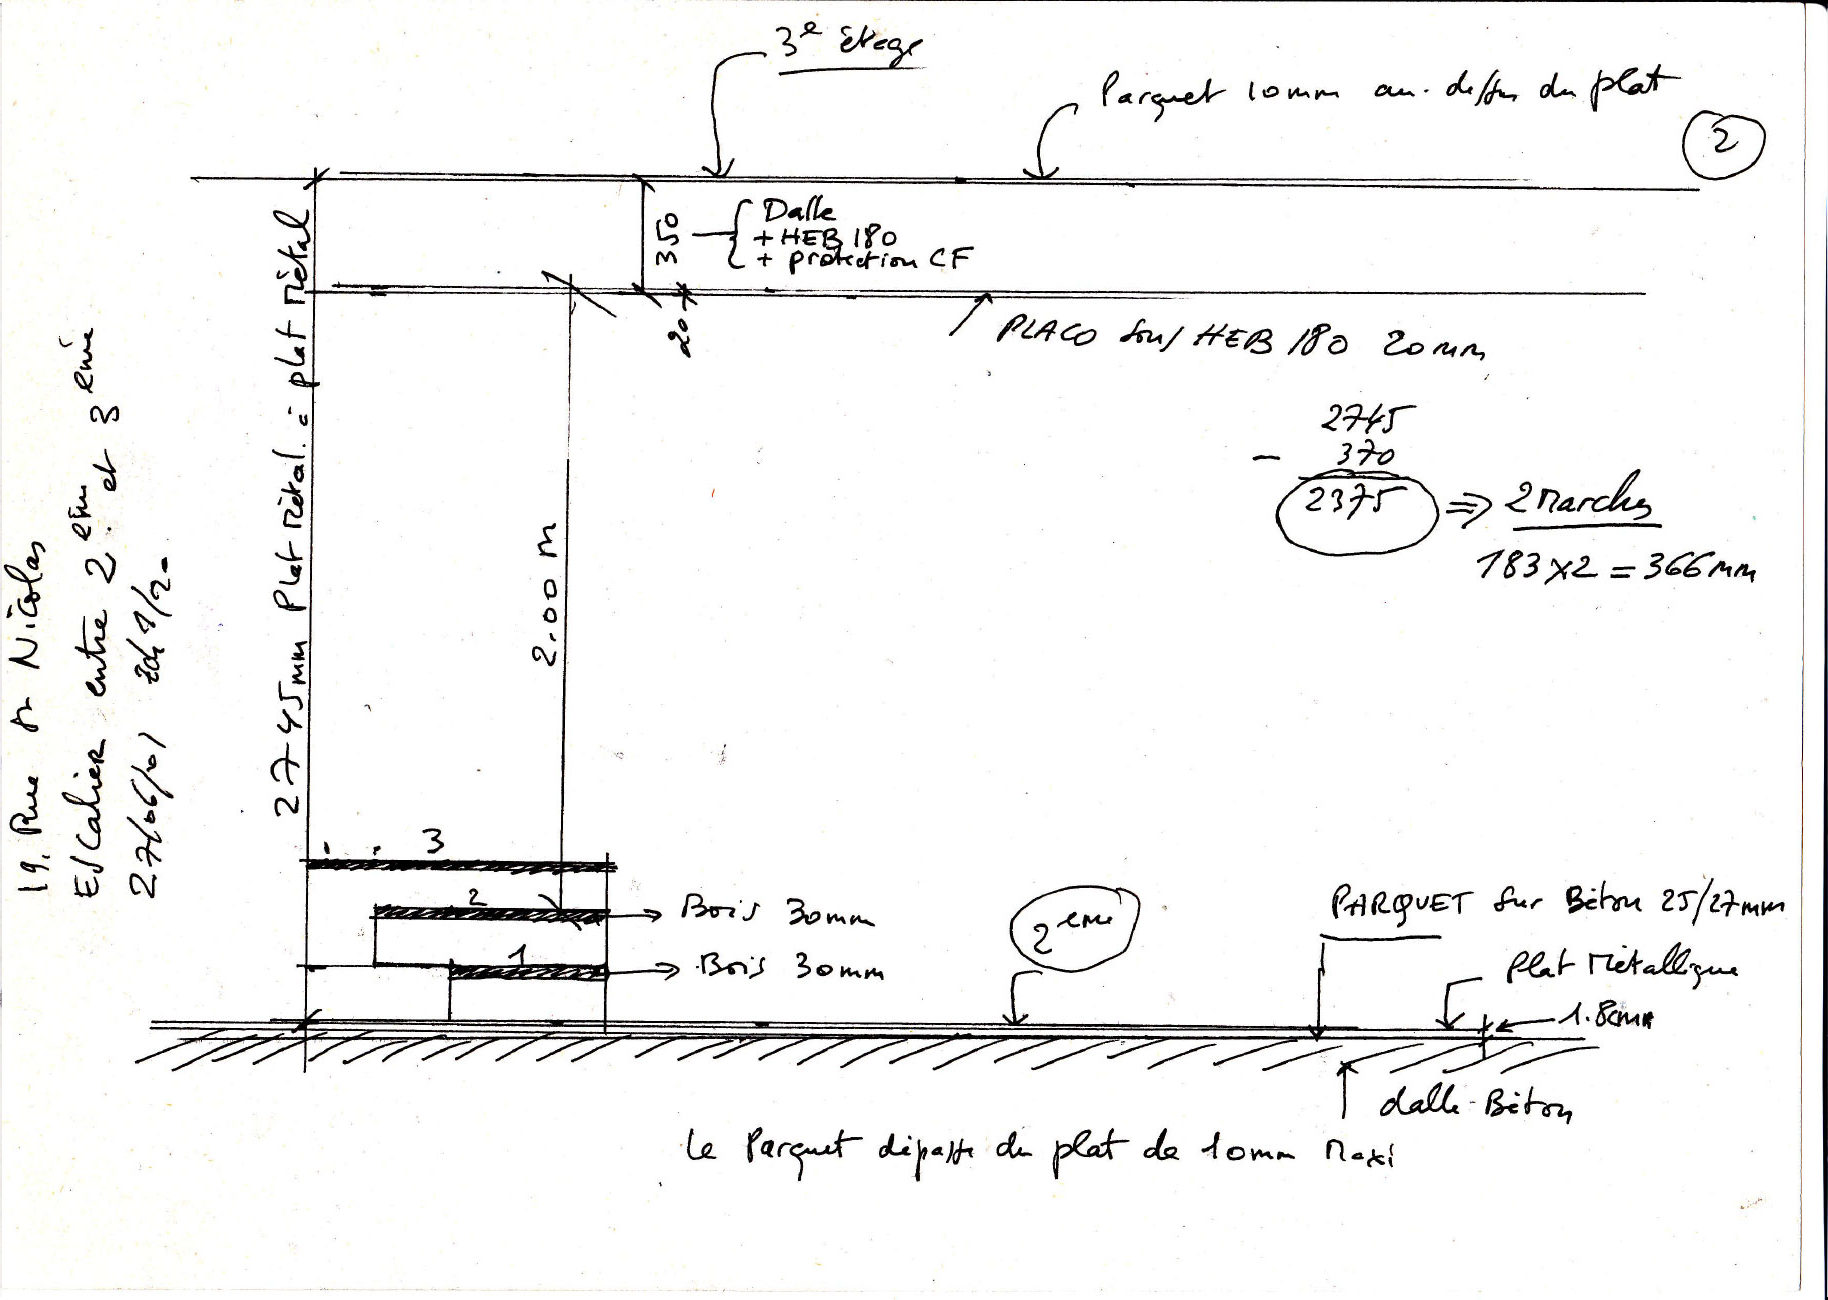 3e étage
Parquet 10mm au-dessus du plat
2
350
Dalle
+ HEB 180
+ protection CF
20
PLACO sous HEB 180 20mm
2745mm Plat métal à plat métal
2745
- 370
2375 => 2 Marches
183 x 2 = 366mm
2.00 m
19. Rue St Nicolas
Escalier entre 2ème et 3ème
27/06/01
3
2
Bois 30mm
1
Bois 30mm
2eme
PARQUET sur Béton 25/27mm
Plat Métallique
1.8cm
dalle Béton
Le Parquet dépasse du plat de 10mm Maxi